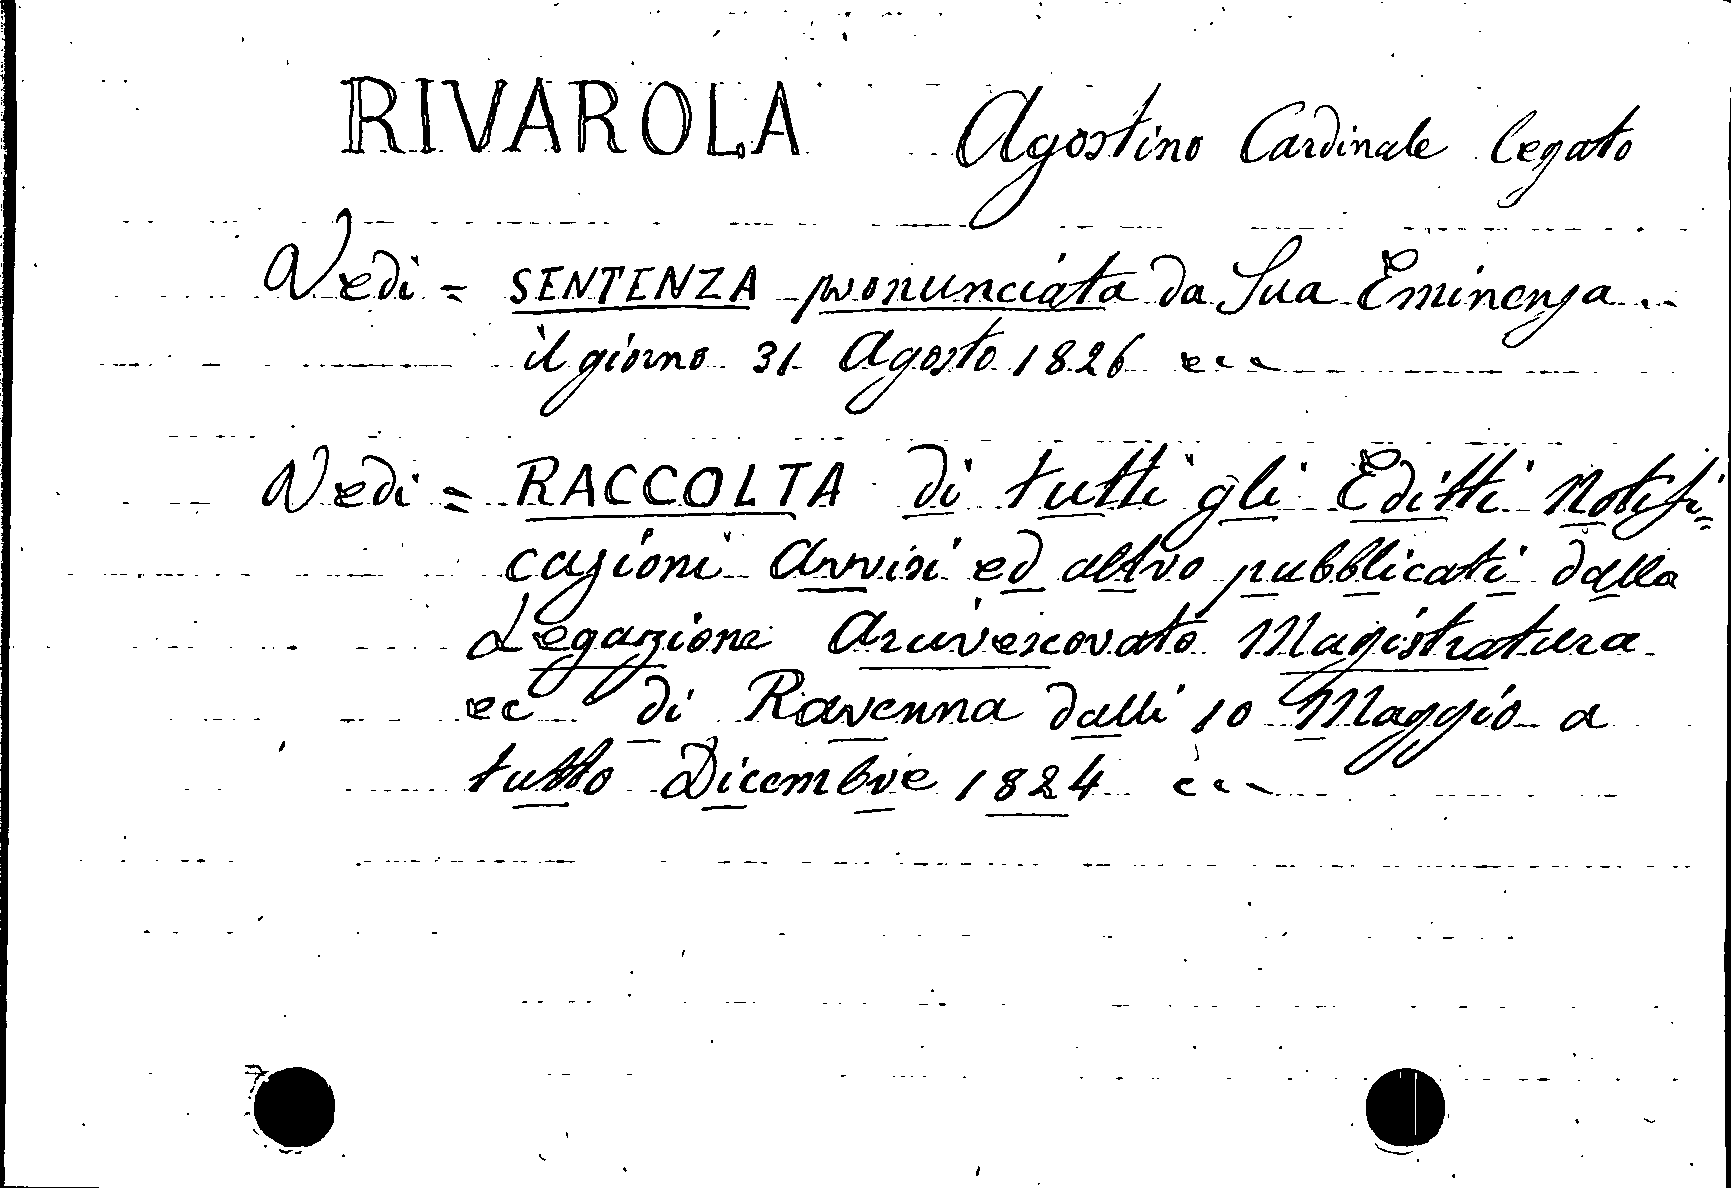 RIVAROLA Agostino Cardinale legato
Vedi = SENTENZA pronunciata da Sua Eminenza ..
il giorno 31 Agosto 1826 ecc
Vedi = RACCOLTA di tutti gli Editti Notifi=
cazioni Avvisi ed altro pubblicati dalla
Legazione Arcivescovato Magistratura
ec di Ravenna dalli 10 Maggio a
tutto Dicembre 1824 ecc